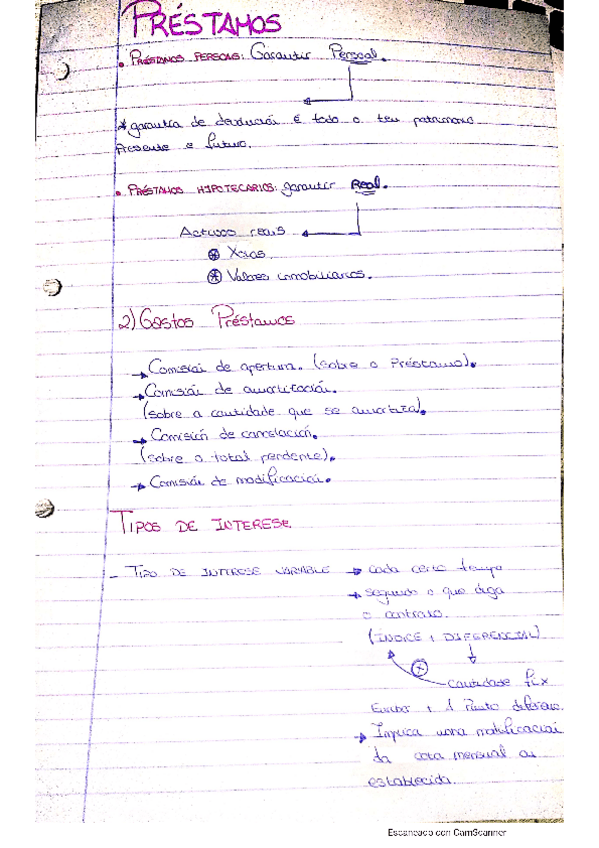 PRÉSTAMOS
• PRÉSTAMOS PERSOAS: Garantía Persoal.
* garantía de devolución é todo o teu patrimonio
presente e futuro.
• PRÉSTAMOS HIPOTECARIOS: garantía Real.
Activos reais
* Xoias
* Valores inmobiliarios.
2) Gastos Préstamos
→ Comisión de apertura. (sobre o Préstamo).
→ Comisión de amortización.
(sobre a cantidade que se amortiza).
→ Comisión de cancelación.
(sobre o total pendente).
→ Comisión de modificación.
TIPOS DE INTERESE
- TIPO DE INTERESE VARIABLE → cada certo tempo
→ segundo o que diga
o contrato.
(INDICE + DIFERENCIAL)
Cantidade fix
Euribor + 1 Punto
→ Implica unha modificación
da cota mensual
establecida.
Escaneado con CamScanner